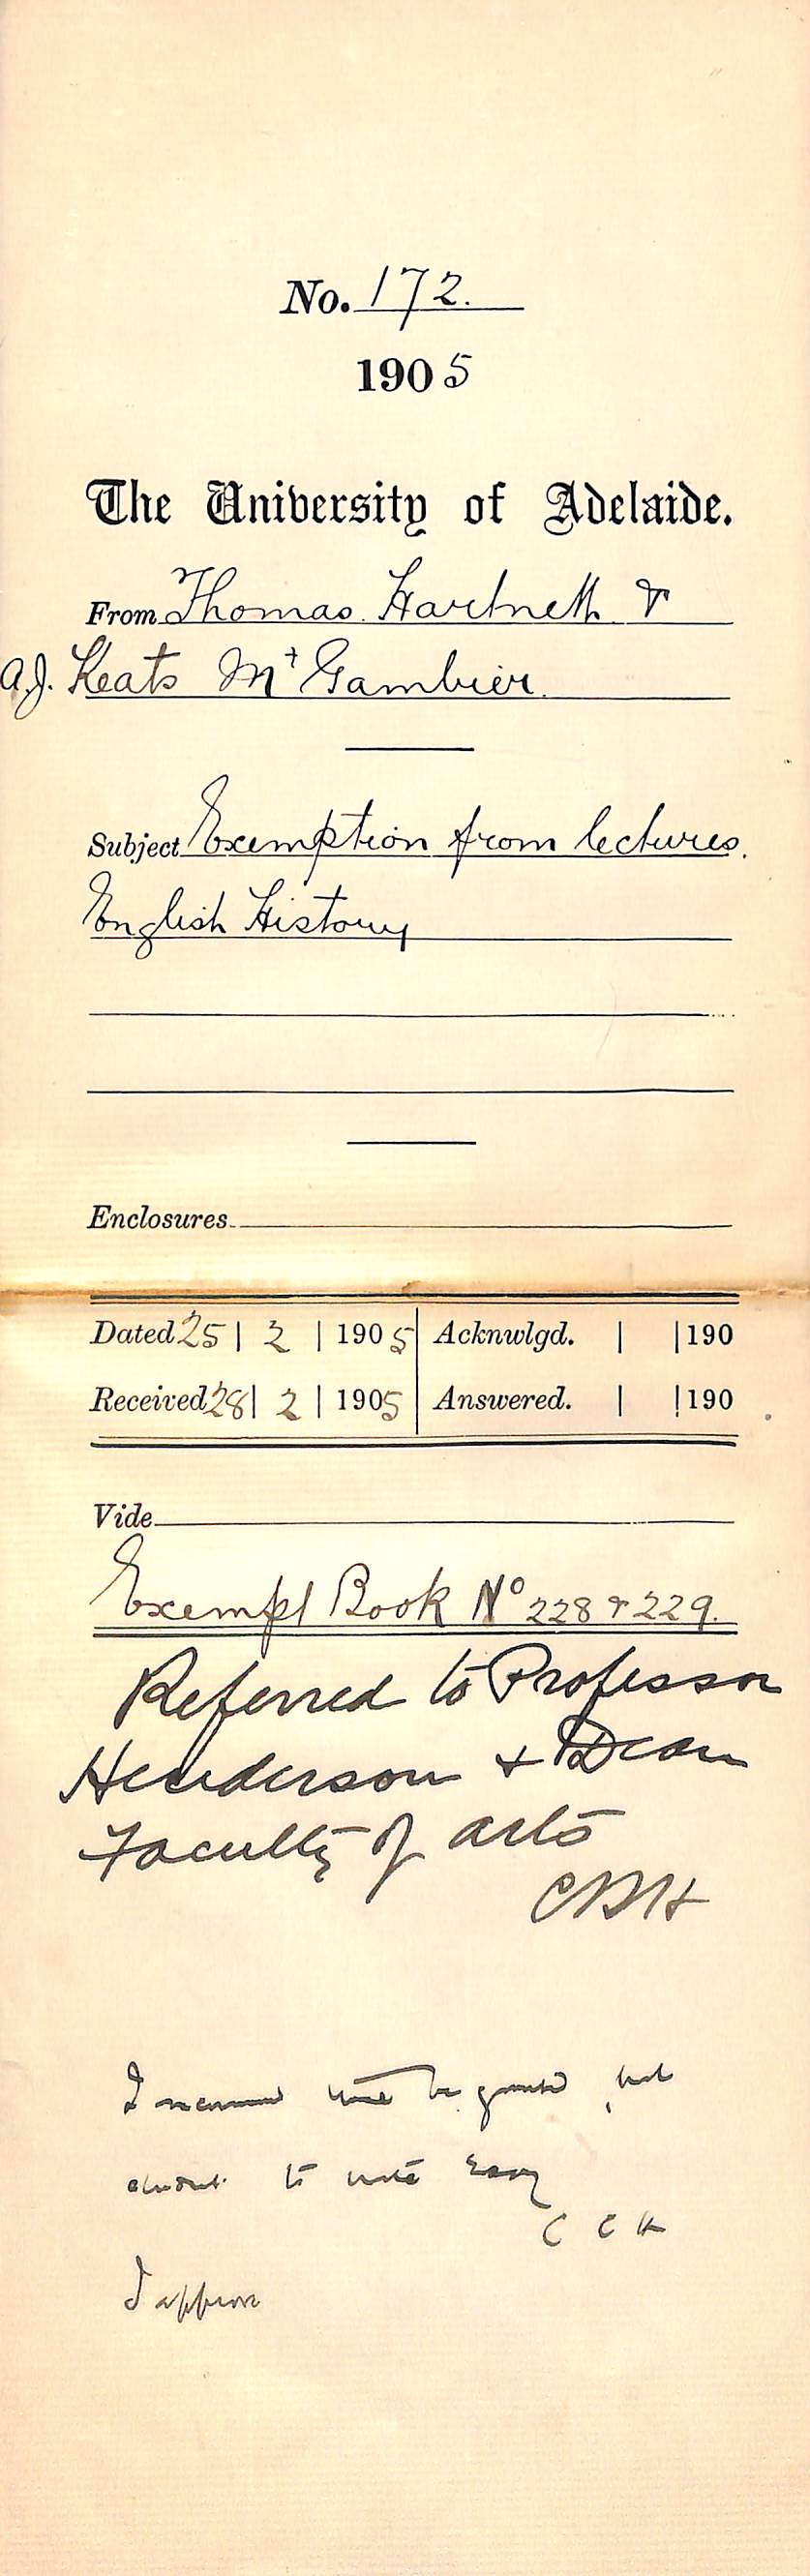 No. 172.
1905
The University of Adelaide.
From Thomas Hartnett &
A.J. Keats Mt Gambier.
Subject Exemption from lectures.
English History
Enclosures
Dated 25 | 2 | 1905 Acknwlgd. | | 190
Received 28 | 2 | 1905 Answered. | | 190
Vide
Exempt Book No 228 & 229.
Referred to Professor
Henderson + Dean
Faculty of Arts
CRH
I recommend be granted, but
to write Essay
I approve